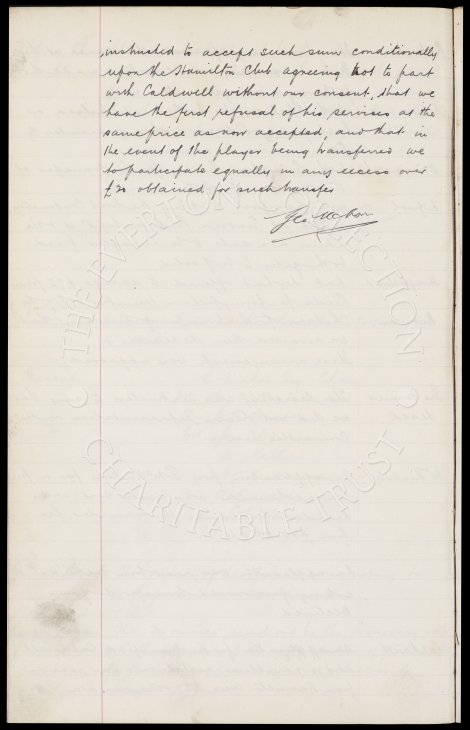 instructed to accept such sum conditionally
upon the Hamilton Club agreeing not to part
with Caldwell without our consent, that we
have the first refusal of his services at the
same price as now accepted, and that in
the event of the player being transferred we
to participate equally in any excess over
£20 obtained for such transfer
Geo. Mahon
THE EVERTON COLLECTION
CHARITABLE TRUST